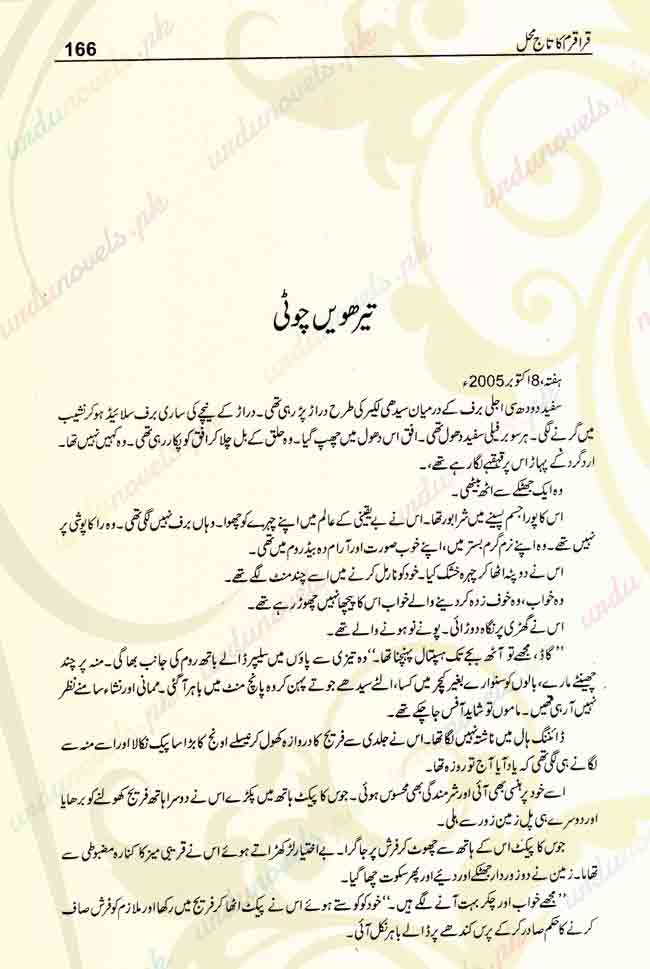 قراقرم کا تاج محل
166
تیرھویں چوٹی
ہفتہ، 8 اکتوبر 2005ء
سفید دودھ سی اجلی برف کے درمیان سیدھی لکیر کی طرح دراڑ پڑ رہی تھی۔ دراڑ کے نیچے کی ساری برف سلائیڈ ہو کر نشیب
میں گرنے لگی۔ ہر سو برفیلی سفید دھول تھی۔ افق اس دھول میں چھپ گیا۔ وہ حلق کے بل چلا کر افق کو پکار رہی تھی۔ وہ کہیں نہیں تھا۔
اردگرد کے پہاڑ اس پر قہقہے لگا رہے تھے،۔
وہ ایک جھٹکے سے اٹھ بیٹھی۔
اس کا پورا جسم پسینے میں شرابور تھا۔ اس نے بے یقینی کے عالم میں اپنے چہرے کو چھوا۔ وہاں برف نہیں لگی تھی۔ وہ راکاپوشی پر
نہیں تھے۔ وہ اپنے نرم گرم بستر میں، اپنے خوب صورت اور آرام دہ بیڈ روم میں تھی۔
اس نے دوپٹہ اٹھا کر چہرہ خشک کیا۔ خود کو نارمل کرنے میں اسے چند منٹ لگے تھے۔
وہ خواب، وہ خوف زدہ کر دینے والے خواب اس کا پیچھا نہیں چھوڑ رہے تھے۔
اس نے گھڑی پر نگاہ دوڑائی۔ پونے نو ہونے والے تھے۔
”گاڈ، مجھے تو آٹھ بجے تک ہسپتال پہنچنا تھا۔“ وہ تیزی سے پاؤں میں سلیپر ڈالے باتھ روم کی جانب بھاگی۔ منہ پر چند
چھینٹے مارے، بالوں کو سنوارے بغیر کیچر میں کسا، الٹے سیدھے جوتے پہن کر وہ پانچ منٹ میں باہر آ گئی۔ ممانی اور نشاء سامنے نظر
نہیں آ رہی تھیں۔ ماموں تو شاید آفس جا چکے تھے۔
ڈائننگ ہال میں ناشتہ نہیں لگا تھا۔ اس نے جلدی سے فریج کا دروازہ کھول کر نیسلے اورنج کا بڑا سا پیک نکالا اور اسے منہ سے
لگانے ہی لگی تھی کہ یاد آیا آج تو روزہ تھا۔
اسے خود پر ہنسی بھی آئی اور شرمندگی بھی محسوس ہوئی۔ جوس کا پیکٹ ہاتھ میں پکڑے اس نے دوسرا ہاتھ فریج کھولنے کو بڑھایا
اور دوسرے ہی پل زمین زور سے ہلی۔
جوس کا پیکٹ اس کے ہاتھ سے چھوٹ کر فرش پر جا گرا۔ بے اختیار لڑکھڑاتے ہوئے اس نے قریبی میز کا کنارہ مضبوطی سے
تھاما۔ زمین نے دو زوردار جھٹکے اور دیئے اور پھر سکوت چھا گیا۔
”مجھے خواب اور چکر بہت آنے لگے ہیں۔“ خود کو کوستے ہوئے اس نے پیکٹ اٹھا کر فریج میں رکھا اور ملازم کو فرش صاف
کرنے کا حکم صادر کر کے پرس کندھے پر ڈالے باہر نکل آئی۔
urdunovels.pk